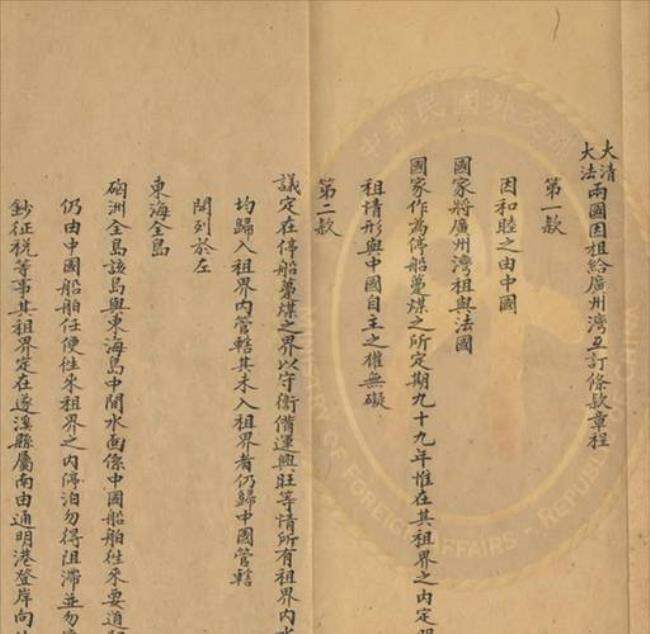 大清
大法
兩國因租給廣州灣互訂條款章程
第一款
因和睦之由中國
國家將廣州灣租與法國
國家作為停船躉煤之所定期九十九年惟在其租界之內定明
租情形與中國自主之權無礙
第二款
議定在停船躉煤之界以守衛備運興旺等情所有租界內水
均歸入租界內管轄其未入租界者仍歸中國管轄
開列於左
東海全島
硇洲全島該島與東海島中間水面係中國船舶往來要道
仍由中國船舶任便往來租界之內停泊勿得阻滯並勿
鈔征稅等事其租界定在遂溪縣屬南由通明港登岸向
中華民國外交部
MINISTRY OF FOREIGN AFFAIRS - REPUBLIC OF CHINA